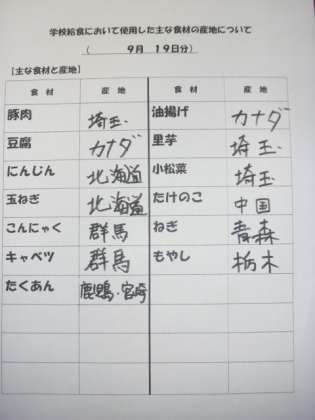 学校給食において使用した主な食材の産地について
( 9月 19日分)
[主な食材と産地]
食材 産地 食材 産地
豚肉 埼玉. 油揚げ カナダ
豆腐 カナダ 里芋 埼玉.
にんじん 北海道 小松菜 埼玉
玉ねぎ 北海道 たけのこ 中国
こんにゃく 群馬 ねぎ 青森
キャベツ 群馬 もやし 栃木
たくあん 鹿児島・宮崎